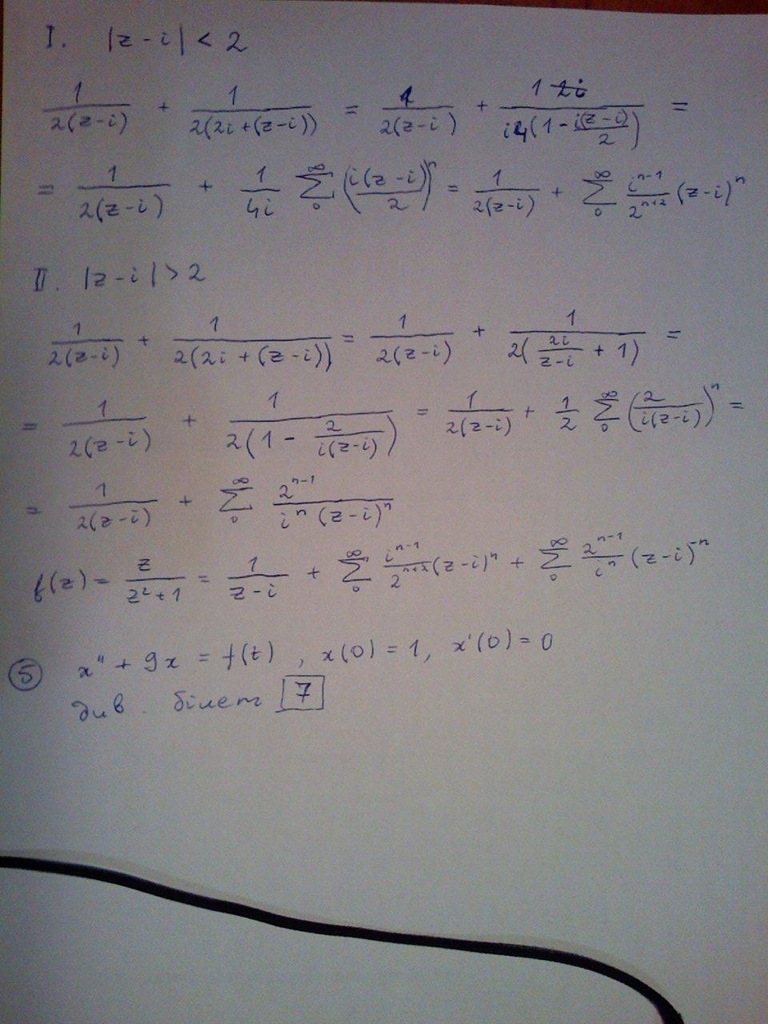 I. |z-i| < 2
1/(2(z-i)) + 1/(2(2i+(z-i))) = 1/(2(z-i)) + 1/(i4(1 - i(z-i)/2)) =
= 1/(2(z-i)) + 1/(4i) ∑₀^∞ (i(z-i)/2)^n = 1/(2(z-i)) + ∑₀^∞ i^(n-1)/2^(n+2) (z-i)^n
II. |z-i| > 2
1/(2(z-i)) + 1/(2(2i + (z-i))) = 1/(2(z-i)) + 1/(2(2i/(z-i) + 1)) =
= 1/(2(z-i)) + 1/(2(1 - 2/(i(z-i)))) = 1/(2(z-i)) + 1/2 ∑₀^∞ (2/(i(z-i)))^n =
= 1/(2(z-i)) + ∑₀^∞ 2^(n-1)/(i^n (z-i)^n)
f(z) = z/(z²+1) = 1/(z-i) + ∑₀^∞ i^(n-1)/2^(n+2) (z-i)^n + ∑₀^∞ 2^(n-1)/i^n (z-i)^(-n)
5 x'' + 9x = f(t), x(0) = 1, x'(0) = 0
див. білет 7